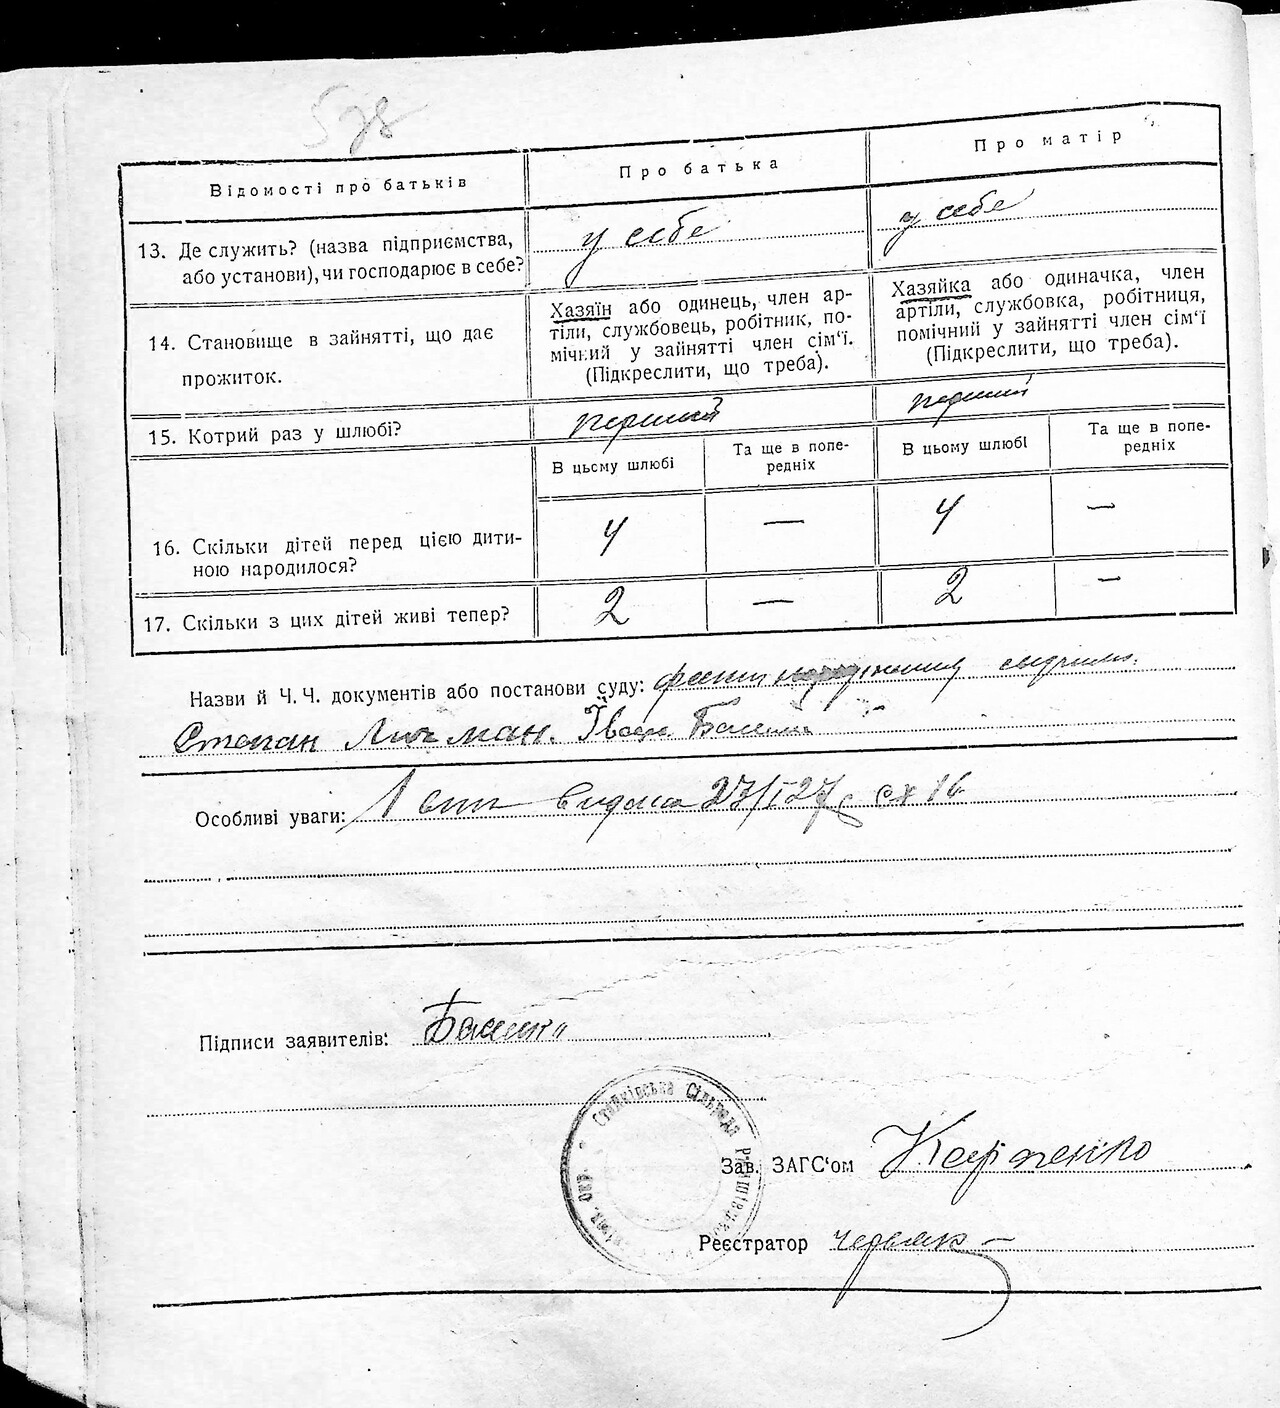 578
Відомості про батьків
Про батька
Про матір
13. Де служить? (назва підприємства,
або установи), чи господарює в себе?
у себе
у себе
14. Становище в зайнятті, що дає
прожиток.
Хазяїн або одинець, член ар-
тіли, службовець, робітник, по-
мічний у зайнятті член сім'ї.
(Підкреслити, що треба).
Хазяйка або одиначка, член
артіли, службовка, робітниця,
помічний у зайнятті член сім'ї
(Підкреслити, що треба).
15. Котрий раз у шлюбі?
перший
перший
В цьому шлюбі
Та ще в попе-
редніх
В цьому шлюбі
Та ще в попе-
редніх
16. Скільки дітей перед цією дити-
ною народилося?
4
—
4
—
17. Скільки з цих дітей живі тепер?
2
—
2
—
Назви й Ч. Ч. документів або постанови суду:
Степан Іван
Особливі уваги: 1 видана 23/I 27
Підписи заявителів:
Сільрада
Зав. ЗАГС'ом Карпенко
Реєстратор Червяк